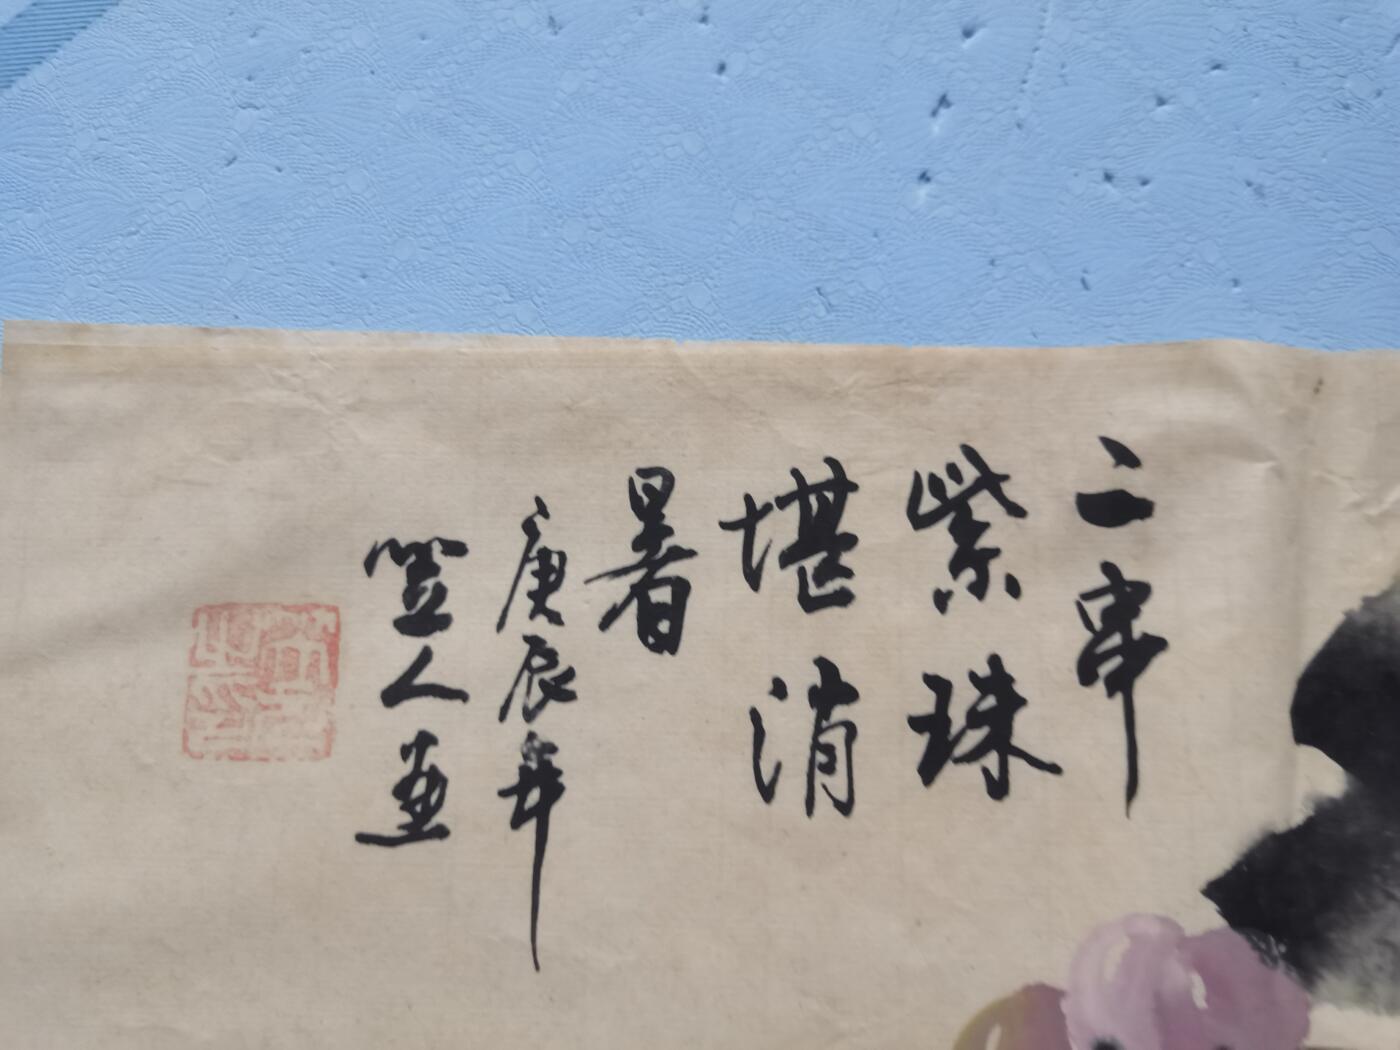 二串
紫珠
堪消
暑
庚辰年
笠人画